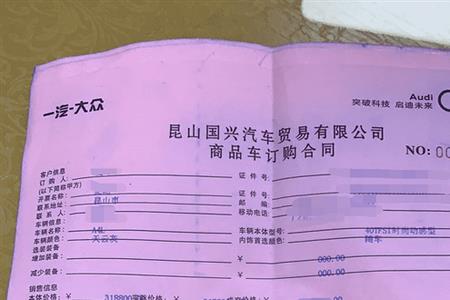 一汽-大众
Audi
突破科技 启迪未来
昆山国兴汽车贸易有限公司
商品车订购合同
NO: 00
客户信息
订 购 人: 证 件 号:
(以下简称甲方)
开票名称: 证 件 号:
联系地址: 昆山市 邮 编:
联 系 人: 移动电话:
车辆信息
车辆名称: A4L 车辆本体型号: 40TFSI时尚动感型
车辆颜色: 天云灰 内饰首选颜色: 随车
选装装备
增加装备: ¥ 000.00
减少装备: ¥ 000.00
销售信息
318800
¥ 000.00